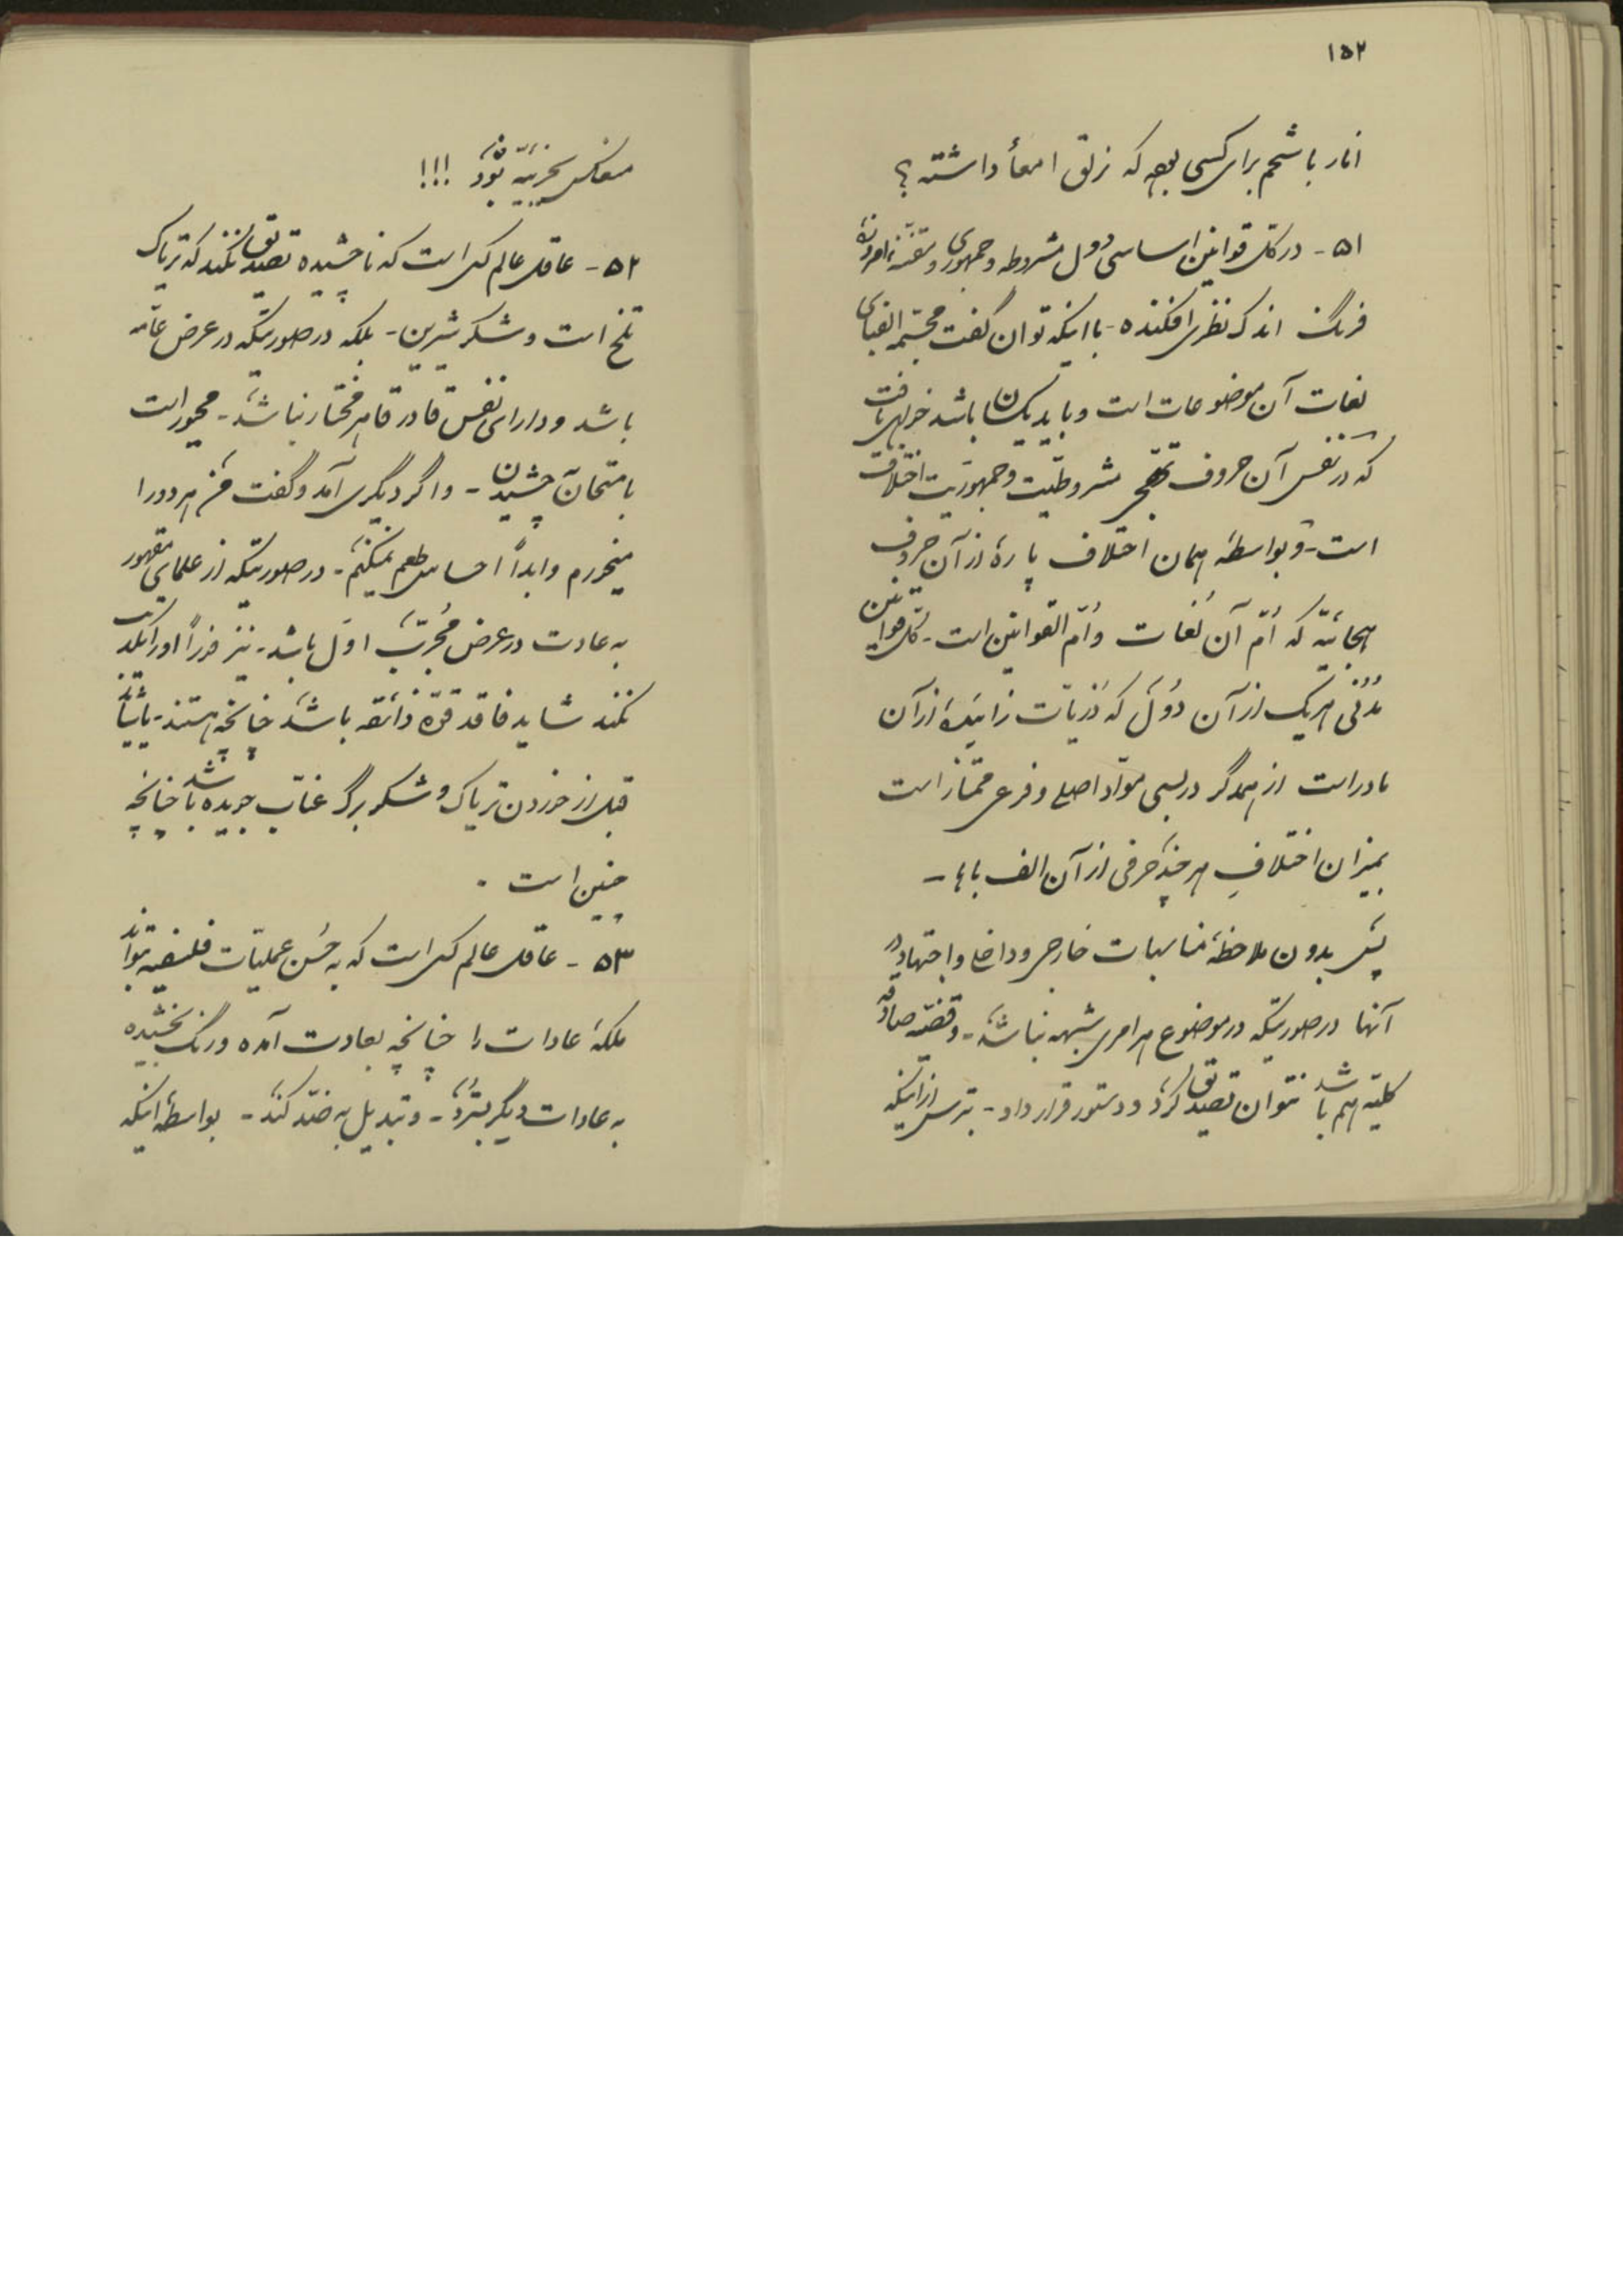 ۱۵۲
انار با شحم برای کسی بوده که زلق امعأ داشته؟
۵۱ - در کل قوانین اساسی دول مشروطه و جمهوری و متقننه امروزه
فرنگ اندک نظری افکنده - با اینکه توان گفت مجسمه الفبای
لغات آن موضوعات است و باید یکسان باشد خواهی یافت
که در نفس آن حروف تهجی مشروطیت و جمهوریت اختلاف
است - و بواسطه همان اختلاف پارهٔ از آن حروف
هجائیه که اُمّ آن لُغات و اُمّ القوانین است - کل قوانین
مُدُنی هریک از آن دُوَل که ذریّات زائیدهٔ از آن
مادر است از همدگر در بسی موادّ اصلی و فرعی ممتاز است
بمیزان اختلافِ هر چند حرفی از آن الف باها -
پس بدون ملاحظهٔ مناسبات خارجی و داخلی و اجتهاد در
آنها در صورتیکه در موضوع هر امری شبهه نباشد - و قضیّه صادقه
کلیّه هم باشد نتوان تصدیق کرد و دستور قرار داد - بترس از اینکه
معاکس نتیجه بود !!!
۵۲ - عاقل عالم کسی است که ناچشیده تصدیق نکند که تریاک
تلخ است و شکر شیرین - بلکه در صورتیکه در عرض عامّه
باشد و دارای نفس قادر قاهر مختار نباشد - مجبور است
بامتحان چشیدن - و اگر دیگری آمد و گفت من هر دو را
میخورم و ابداً احساس طعم نمیکنم - در صورتیکه از علمای مقهور
به عادت در عرض مُجَرِّبِ اوّل باشد - نیز فوراً او را تکذیب
نکند شاید فاقد قوّه ذائقه باشد چنانچه هستند -
قبل از خوردن تریاک و شکر برگ عنّاب جویده باشد چنانچه
چنین است .
۵۳ - عاقل عالم کسی است که به حُسن عملیّات فلسفیه بتواند
ملکهٔ عادات را چنانچه بعادت آمده و رنگ بخشیده
به عادات دیگر بَبَرد - و تبدیل به ضدّ کند - بواسطهٔ اینکه